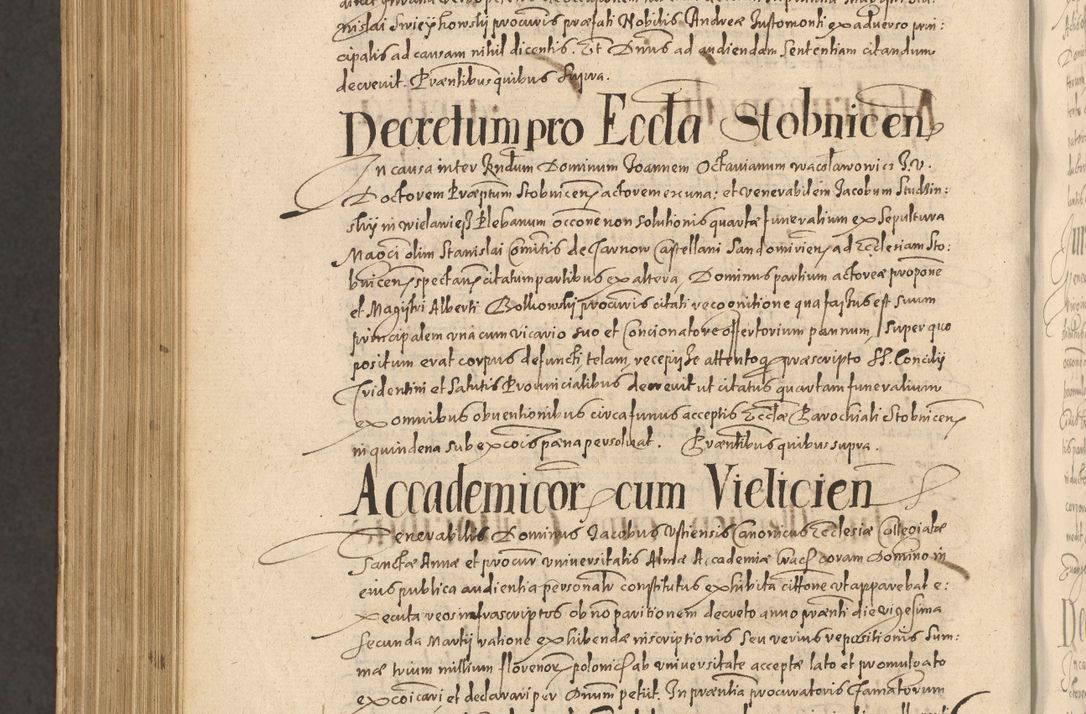 nislai Swieykowsky procuris præfati Nobilis Andreæ Justomonti ex adverso prin:
cipalis ad causam nihil dicentis. Et Dnus ad audiendam Sententiam citandum
decrevit. Præntibus quibus Supra.
Decretum pro Eccla Stobnicen
In causa inter Rndum Dominum Joannem Octavianum Wacławowicz J. V.
Doctorem Præptum Stobnicen actorem ex una: et Venerabilem Jacobum Studzin:
sky in Plebanum occone non Solutionis quartæ funeralium ex Sepultura
olim Stanislai Comitis de Tarnow Castellani Sandomirien ad Ecclesiam Sto:
bnicen Spectan citatum partibus ex altera, Dominus partium actoreæ propone
et Magistri Alberti procuris citati recognitione qua fassus est Suum
principalem una cum Vicario Suo et Concionatore offertorium pannum, Super quo
positum erat corpus defuncti telam, recepisse attentoq præscripto SS. Concily
Tridentini et Statutis Provincialibus decrevit ut citatus quartam funeralium
ex omnibus obventionibus circa funus acceptis Ecclæ Parochiali Stobnicen
in quindena sub excois pæna persolvat. Præntibus quibus supra.
Accademicor cum Vielicien
Venerabilis Dominus Jacobus Vstiensis Canonicus Ecclesiæ Collegiatæ
Sanctæ Annæ et procur Vniversitatis Almæ Accademiæ Crac coram Domino in
eius publica audientia personalr constitutus exhibita cittone ut apparebat e:
xecuta reos infrascriptos ob no paritionem decreto anno prænti die vigesima
Secunda Martij ratione exhibendæ inscriptionis Seu verius repositionis Sum:
mæ trium millium florenor polonic ab Vniversitate acceptæ lato et promulgato
excoicari et declarari per Dnum petijt. In præntia procuratoris famatorum